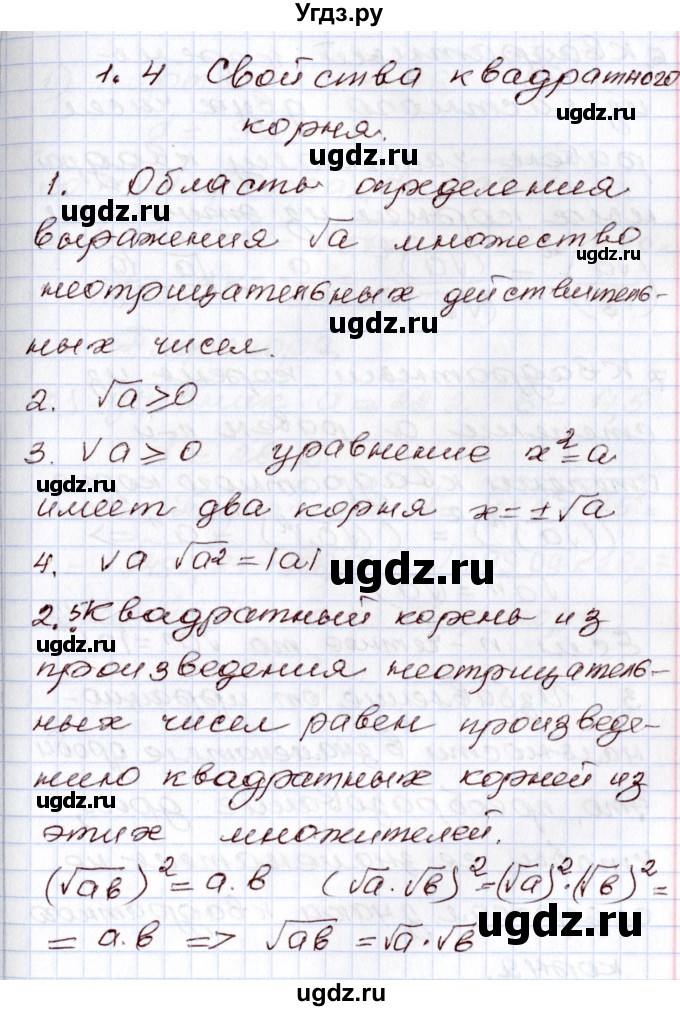 Угдз.ру
1. 4 Свойства квадратного
корня.
1. Область определения
выражения √a множество
неотрицательных действитель-
ных чисел.
2. √a ≥ 0
3. ∀ a ≥ 0 уравнение x² = a
имеет два корня x = ± √a
4. ∀ a √a² = |a|
2.5 Квадратный корень из
произведения неотрицатель-
ных чисел равен произведе-
нию квадратных корней из
этих множителей.
(√ab)² = a.b (√a.√b)² = (√a)²·(√b)² =
= a.b => √ab = √a·√b
ugdz.ru